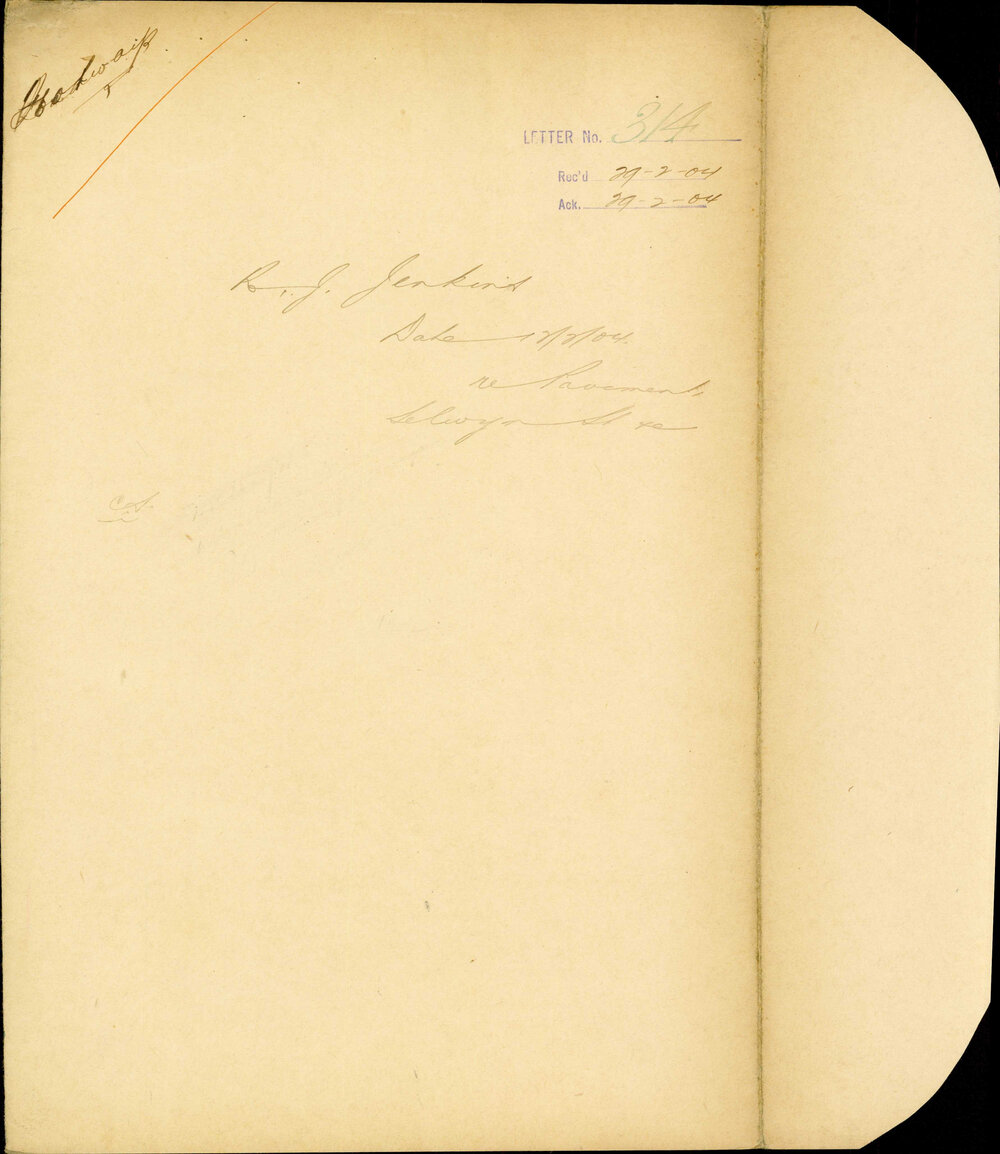 Footways
LETTER No. 314
Rec'd 29-2-04
Ack. 29-2-04
R. J. Jenkins
Date 12/2/04
re Pavement,
Selwyn St &c